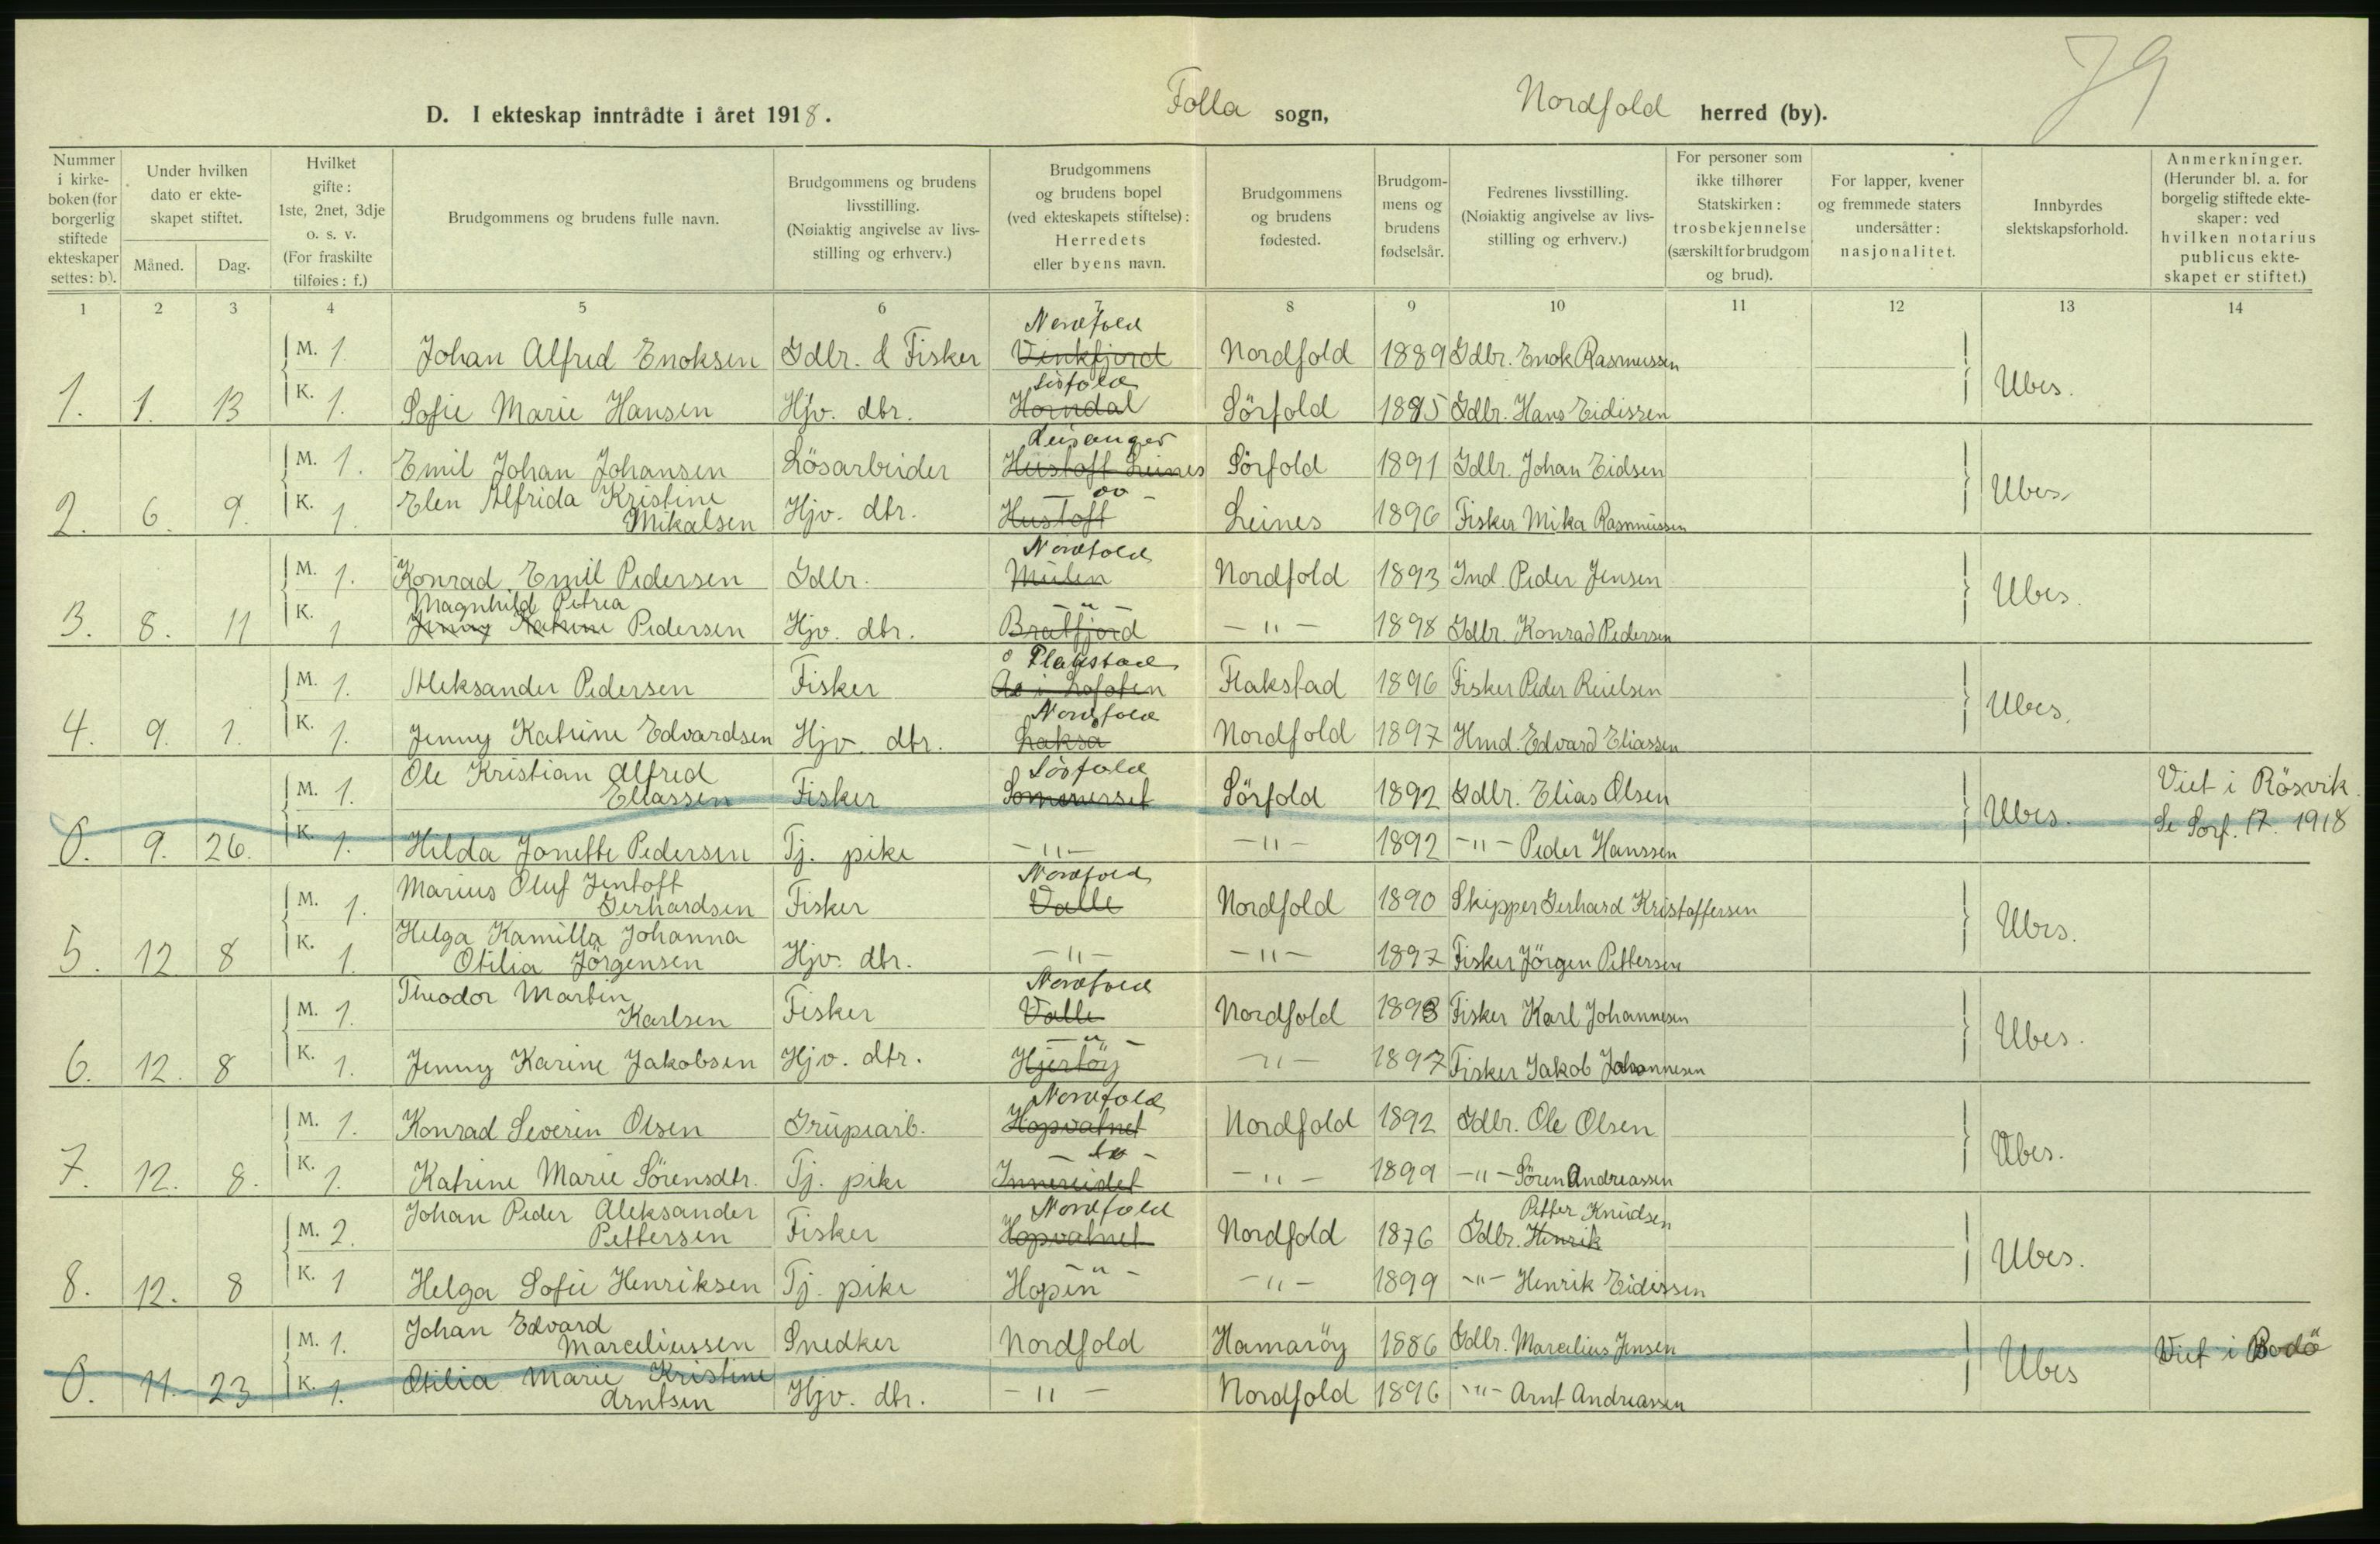 79
D. I ekteskap inntrådte i året 1918. Folla sogn, Nordfold herred (by).
Nummer i kirkeboken (for borgerlig stiftede ekteskaper settes: b).
Under hvilken dato er ekteskapet stiftet.
Måned. Dag.
Hvilket gifte: 1ste, 2net, 3dje o. s. v. (For fraskilte tilføies: f.)
Brudgommens og brudens fulle navn.
Brudgommens og brudens livsstilling. (Nøiaktig angivelse av livsstilling og erhverv.)
Brudgommens og brudens bopel (ved ekteskapets stiftelse): Herredets eller byens navn.
Brudgommens og brudens fødested.
Brudgommens og brudens fødselsår.
Fedrenes livsstilling. (Nøiaktig angivelse av livsstilling og erhverv.)
For personer som ikke tilhører Statskirken: trosbekjennelse (særskilt for brudgom og brud).
For lapper, kvener og fremmede staters undersåtter: nasjonalitet.
Innbyrdes slektskapsforhold.
Anmerkninger. (Herunder bl. a. for borgelig stiftede ekteskaper: ved hvilken notarius publicus ekteskapet er stiftet.)
1 2 3 4 5 6 7 8 9 10 11 12 13 14
Nordfold
M. 1. Johan Alfred Enoksen Gdbr. & Fisker Vinkfjord Nordfold 1889 Gdbr. Enok Rasmussen
Sørfold
1. 1. 13 K. 1. Sofie Marie Hansen Hjv. dtr. Horndal Sörfold 1885 Gdbr. Hans Eidissen Ubes.
Leiranger
M. 1. Emil Johan Johansen Lösarbeider Hustoft Leines Sörfold 1891 Gdbr. Johan Eidsen
2. 6. 9. K. 1. Elen Alfrida Kristine Mikalsen Hjv. dtr. Hustoft Leines 1896 Fisker Mika Rasmussen Ubes.
Nordfold
M. 1. Konrad Emil Pedersen Gdbr. Mulen Nordfold 1893 Ind. Peder Jensen
Magnhild Petrea — " —
3. 8. 11 K. 1 Jenny Katrine Pedersen Hjv. dtr. Bratfjord — " — 1898 Gdbr. Konrad Pedersen Ubes.
Flakstad
M. 1. Aleksander Pedersen Fisker Aa i Lofoten Flakstad 1896 Fisker Peder Reielsen
Nordfold
4. 9. 1. K. 1. Jenny Katrine Edvardsen Hjv. dtr. Lakså Nordfold 1897 Hmd. Edvard Eliassen Ubes.
Sörfold
M. 1. Ole Kristian Alfred Eliassen Fisker Sommerset Sörfold 1892 Gdbr. Elias Olsen Viet i Rösvik.
0. 9. 26. K. 1. Hilda Jonette Pedersen Tj. pike — " — — " — 1892 — " — Peder Hanssen Ubes. Se Sorf. 17. 1918
Nordfold
M. 1. Marius Oluf Jentoft Gerhardsen Fisker Valle Nordfold 1890 Skipper Gerhard Kristoffersen
5. 12 8 K. 1. Helga Kamilla Johanna Otilia Jörgensen Hjv. dtr. — " — — " — 1897 Fisker Jörgen Pettersen Ubes.
Nordfold
M. 1. Theodor Martin Karlsen Fisker Valle Nordfold 1893 Fisker Karl Johannesen
— " —
6. 12. 8 K. 1. Jenny Karine Jakobsen Hjv. dtr. Hjertöy — " — 1897 Fisker Jakob Johannesen Ubes.
Nordfold
M. 1. Konrad Severin Olsen Grüpearb. Hopvatnet Nordfold 1892 Gdbr. Ole Olsen
7. 12. 8. K. 1. Katrine Marie Sörensdtr. Tj. pike Innereidet — " — 1899 — " — Sören Andreassen Ubes.
Nordfold Petter Knudsen
M. 2. Johan Peder Aleksander Pettersen Fisker Hopvatnet Nordfold 1876 Gdbr. Henrik
— " —
8. 12. 8 K. 1 Helga Sofie Henriksen Tj. pike Hopen — " — 1899 — " — Henrik Eidissen Ubes.
M. 1. Johan Edvard Marceliussen Snedker Nordfold Hamaröy 1886 Gdbr. Marcelius Jensen Viet i Bodö
0. 11. 23 K. 1. Otilia Marie Kristine Arntsen Hjv. dtr. — " — Nordfold 1896 — " — Arnt Andreassen Ubes